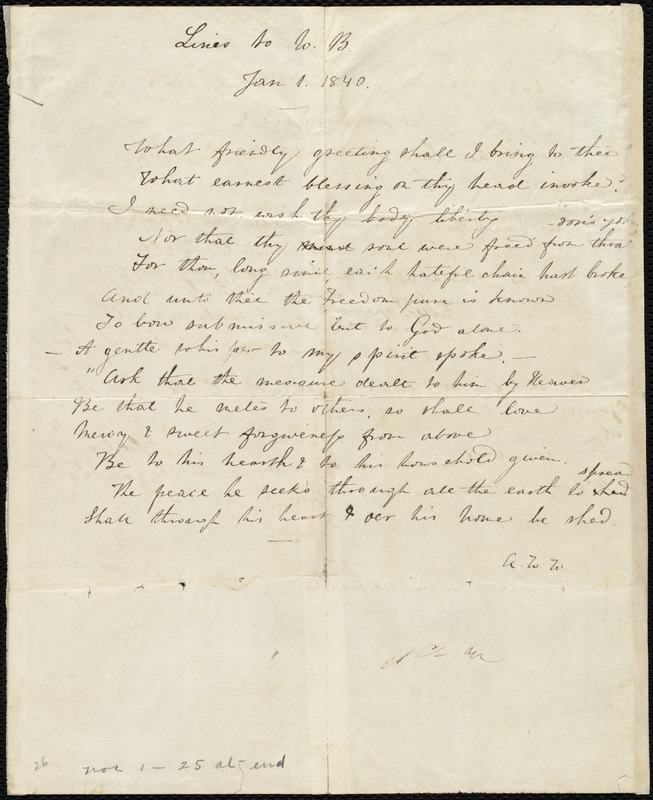 Lines to W. B.
Jan 1. 1840.
What friendly greeting shall I bring to thee
What earnest blessing on thy head invoke?
I need not wish thy body liberty
Nor that thy mind soul were freed from thral
For thou, long since each hateful chain hast broke
And unto thee the Freedom pure is known
To bow submissive but to God alone.
— A gentle whisper to my spirit spoke. —
"Ask that the measure dealt to him by Heaven
Be that he metes to others, so shall love
Mercy & sweet forgiveness from above
Be to his hearth & to his household given.
spread
The peace he seeks through all the earth to shed
Shall through his heart & oer his home be shed.
A. W. W.
nos 1 – 25 at end
26